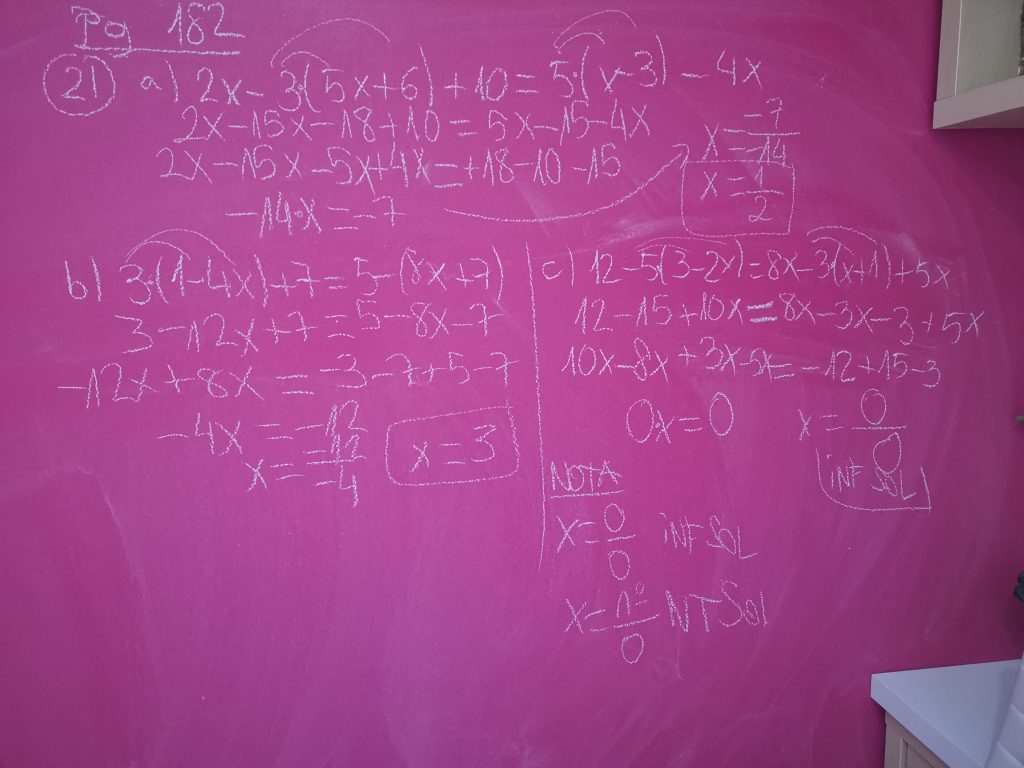 Pg 182
21) a) 2x-3·(5x+6)+10=5·(x-3)-4x
2x-15x-18+10=5x-15-4x
2x-15x-5x+4x=+18-10-15
-14·x=-7
x=-7/-14
x=1/2
b) 3·(1-4x)+7=5-(8x+7)
3-12x+7=5-8x-7
-12x+8x=-3-7+5-7
-4x=-12
x=-12/-4
x=3
c) 12-5·(3-2x)=8x-3·(x+1)+5x
12-15+10x=8x-3x-3+5x
10x-8x+3x-5x=-12+15-3
0x=0
x=0/0
INF SOL
NOTA
x=0/0 INF SOL
x=nº/0 NT Sol